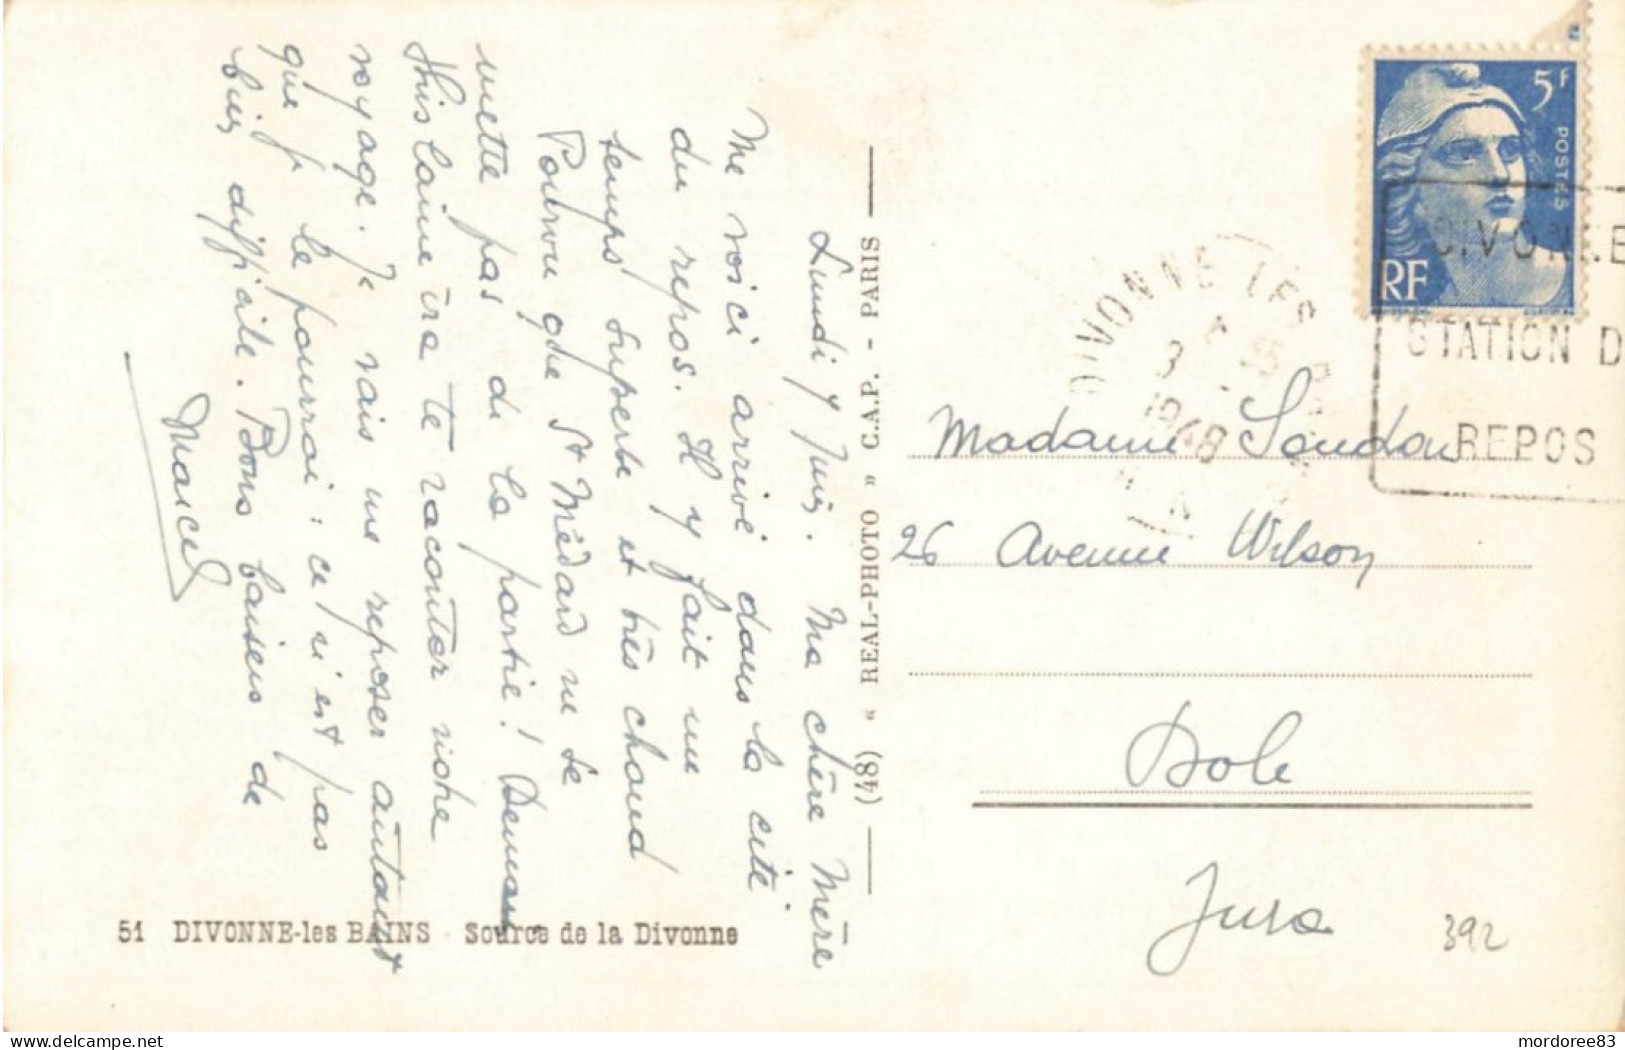 Lundi 7 Juin. Ma chère Mère
Me voici arrivé dans la cité
du repos. Il y fait un
temps superbe et très chaud
Pourvu que St Médard ne se
mette pas de la partie! Demain
Ghislaine ira te raconter notre
voyage. Je vais me reposer autant
que je le pourrai: ce n'est pas
bien difficile. Bons baisers de
Marcel
51 DIVONNE-les BAINS Source de la Divonne
(48) « REAL-PHOTO » C.A.P. - PARIS
5F
POSTES
RF
DIVONNE LES
1948
DIVONNE
STATION D
REPOS
Madame Soudan
26 Avenue Wilson
Dole
Jura
392
mordoree83